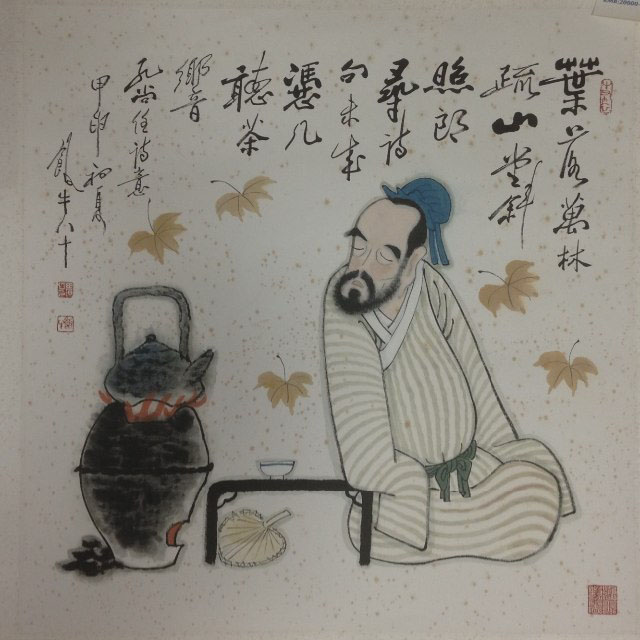 葉落萬林
疏山堂斜
照朗
尋詩
句未成
憑几
聽茶
響
孔尚任詩意
甲申初夏
年八十